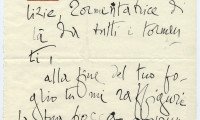 tizie, Tormentatrice di
là da tutti i tormen
ti,
alla fine del tuo fo
glio tu mi raffiguri
la tua bocca